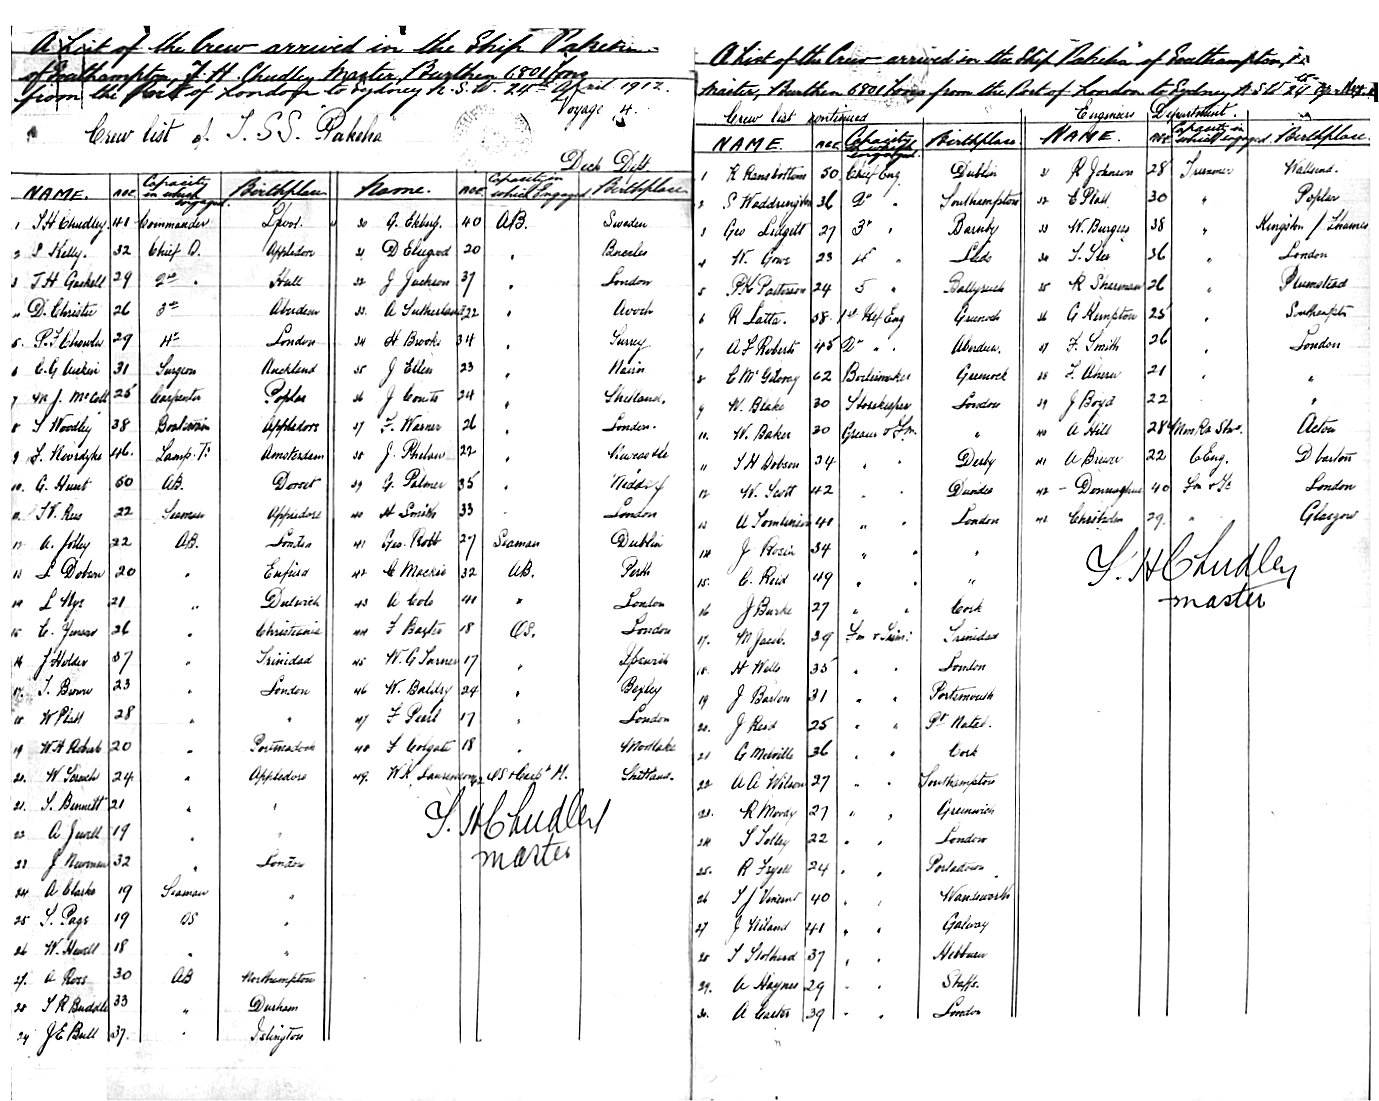 A List of the Crew arrived in the Ship Pakeha
of Southampton, T. H. Chudley Master, Burthen 6801 Tons
from the Port of London to Sydney N. S. W. 24th April 1912
Voyage 4.
Crew list of T.SS. Pakeha
Deck Dept.
NAME. AGE Capacity in which engaged. Birthplace
1 T H Chudley 41 Commander L'pool
2 Kelly. 32 Chief O. Appledore
3 T. H. Gaskell 29 2nd " Hull
4 D. Christie 26 3rd Aberdeen
5 29 4th London
6 31 Surgeon Auckland
7 J. McColl 25 Carpenter Poplar
8 Woodley 38 Boatswain Appledore
9 46. Lamp Tr Amsterdam
10. G. Hunt 50 AB. Dorset
11. 22 Seaman Appledore
12 A. Jolley 22 AB. London
13 Dobson 20 " Enfield
14 L Nye 21 " Dulwich
15 26 " Christiania
16 J Holder 37 " Trinidad
17. T. Brown 23 " London
18 W Platt 28 " "
19 W. H Roberts 20 Portmadock
20. W. 24 " Appledore
21. Bennett 21 " "
22 A Jewell 19 " "
23 J Newman 32 " London
24 A Clarke 19 Seaman "
25 Page 19 OS "
26 W. Hewell 18 " "
27. A Ross 30 AB Northampton
28 R Buddle 33 " Durham
29 J E Bull 37. " Islington
Name. AGE Capacity in which Engaged Birthplace
30 G. Ekberg. 40 AB. Sweden
31 D 20 "
32 J Jackson 37 " London
33. A Sutherland 22 " Avoch
34 H Brooks 34 " Surrey
35 J Ellis 23 " Nairn
36 J Coutts 24 " Shetland.
37 F. Warner 26 " London.
38 J. Phelan 22 " Newcastle
39 G. Palmer 35 "
40 H Smith 33 " London
41 Geo. Robb 27 Seaman Dublin
42 Mackie 32 AB. Perth
43 A Cole 41 " London
44 F Baxter 18 OS. London
45 W. G Turner 17 " Ipswich
46 W. Baldry 24 " Bexley
47 F Pearl 17 " London
48 Colgate 18 " Mortlake
49. W K Laurenson 22 OS & Carpt M. Shetland.
T. H Chudley
master
A List of the Crew arrived in the Ship "Pakeha" of Southampton,
Master, Burthen 6801 Tons from the Port of London to Sydney N S W 24th
Crew list continued
NAME. AGE Capacity Engaged. Birthplace
1 K Ransbottom 50 Chief Eng Dublin
2 S Waddrington 36 2nd " Southampton
3 Geo Lidgett 27 3rd " Barnby
4 W. Gowe 23 4th " Leeds
5 Patterson 24 5 "
6 R Latta. 38 1st Ref Eng Greenock
7 A F Roberts 45 2nd " . Aberdeen.
8 C Mc Gilvray 62 Boilermaker Greenock
9 W. Blake 30 Storekeeper London
10. W. Baker 20 Greaser & Fm. "
11 T H Dobson 34 " " Derby
12 W. Scott 42 " " Dundee
13 A Tomlinson 41 " " London
14. J Rosin 34 " " "
15. C. Reid 49 " " "
16 J Burke 27 " " Cork
17. M Jacob. 39 Fm & Trim: Trinidad
18. H Wells 35 " " London
19 J Barton 31 " " Portsmouth
20. J Reid 25 " " Pt Natal.
21 G Melville 36 " " Cork
22 A A Wilson 27 " " Southampton
23. R Moody 27 " " Greenwich
24 Tolley 22 " " London
25. R Fryatt 24 " " Portadown
26 J Vincent 40 " " Wandsworth
27 J Wiland 41 " " Galway
28 Stothard 37 " " Hebburn
29. A Haynes 29 " " Staffs.
30. A Carter 39 " " London
Engineers Department.
NAME. AGE Capacity in which engaged Birthplace
31 R Johnson 28 Trimmer Wallsend.
32 E Platt 30 " Poplar
33 W. Burgess 38 " Kingston / Thames
34 36 " London
35 R Sherman 26 " Plumstead
36 G Kempton 25 " Southampton
37 F. Smith 26 " London
38 F. Ahern 21 " "
39 J Boyd 22 "
40 A Hill 28 Acton
41 A Brewer 22 C Eng. Dbarton
42 - Donnaghue 40 Fm & Tr London
43 Chrisholm 29. " Glasgow
T. H Chudley
master